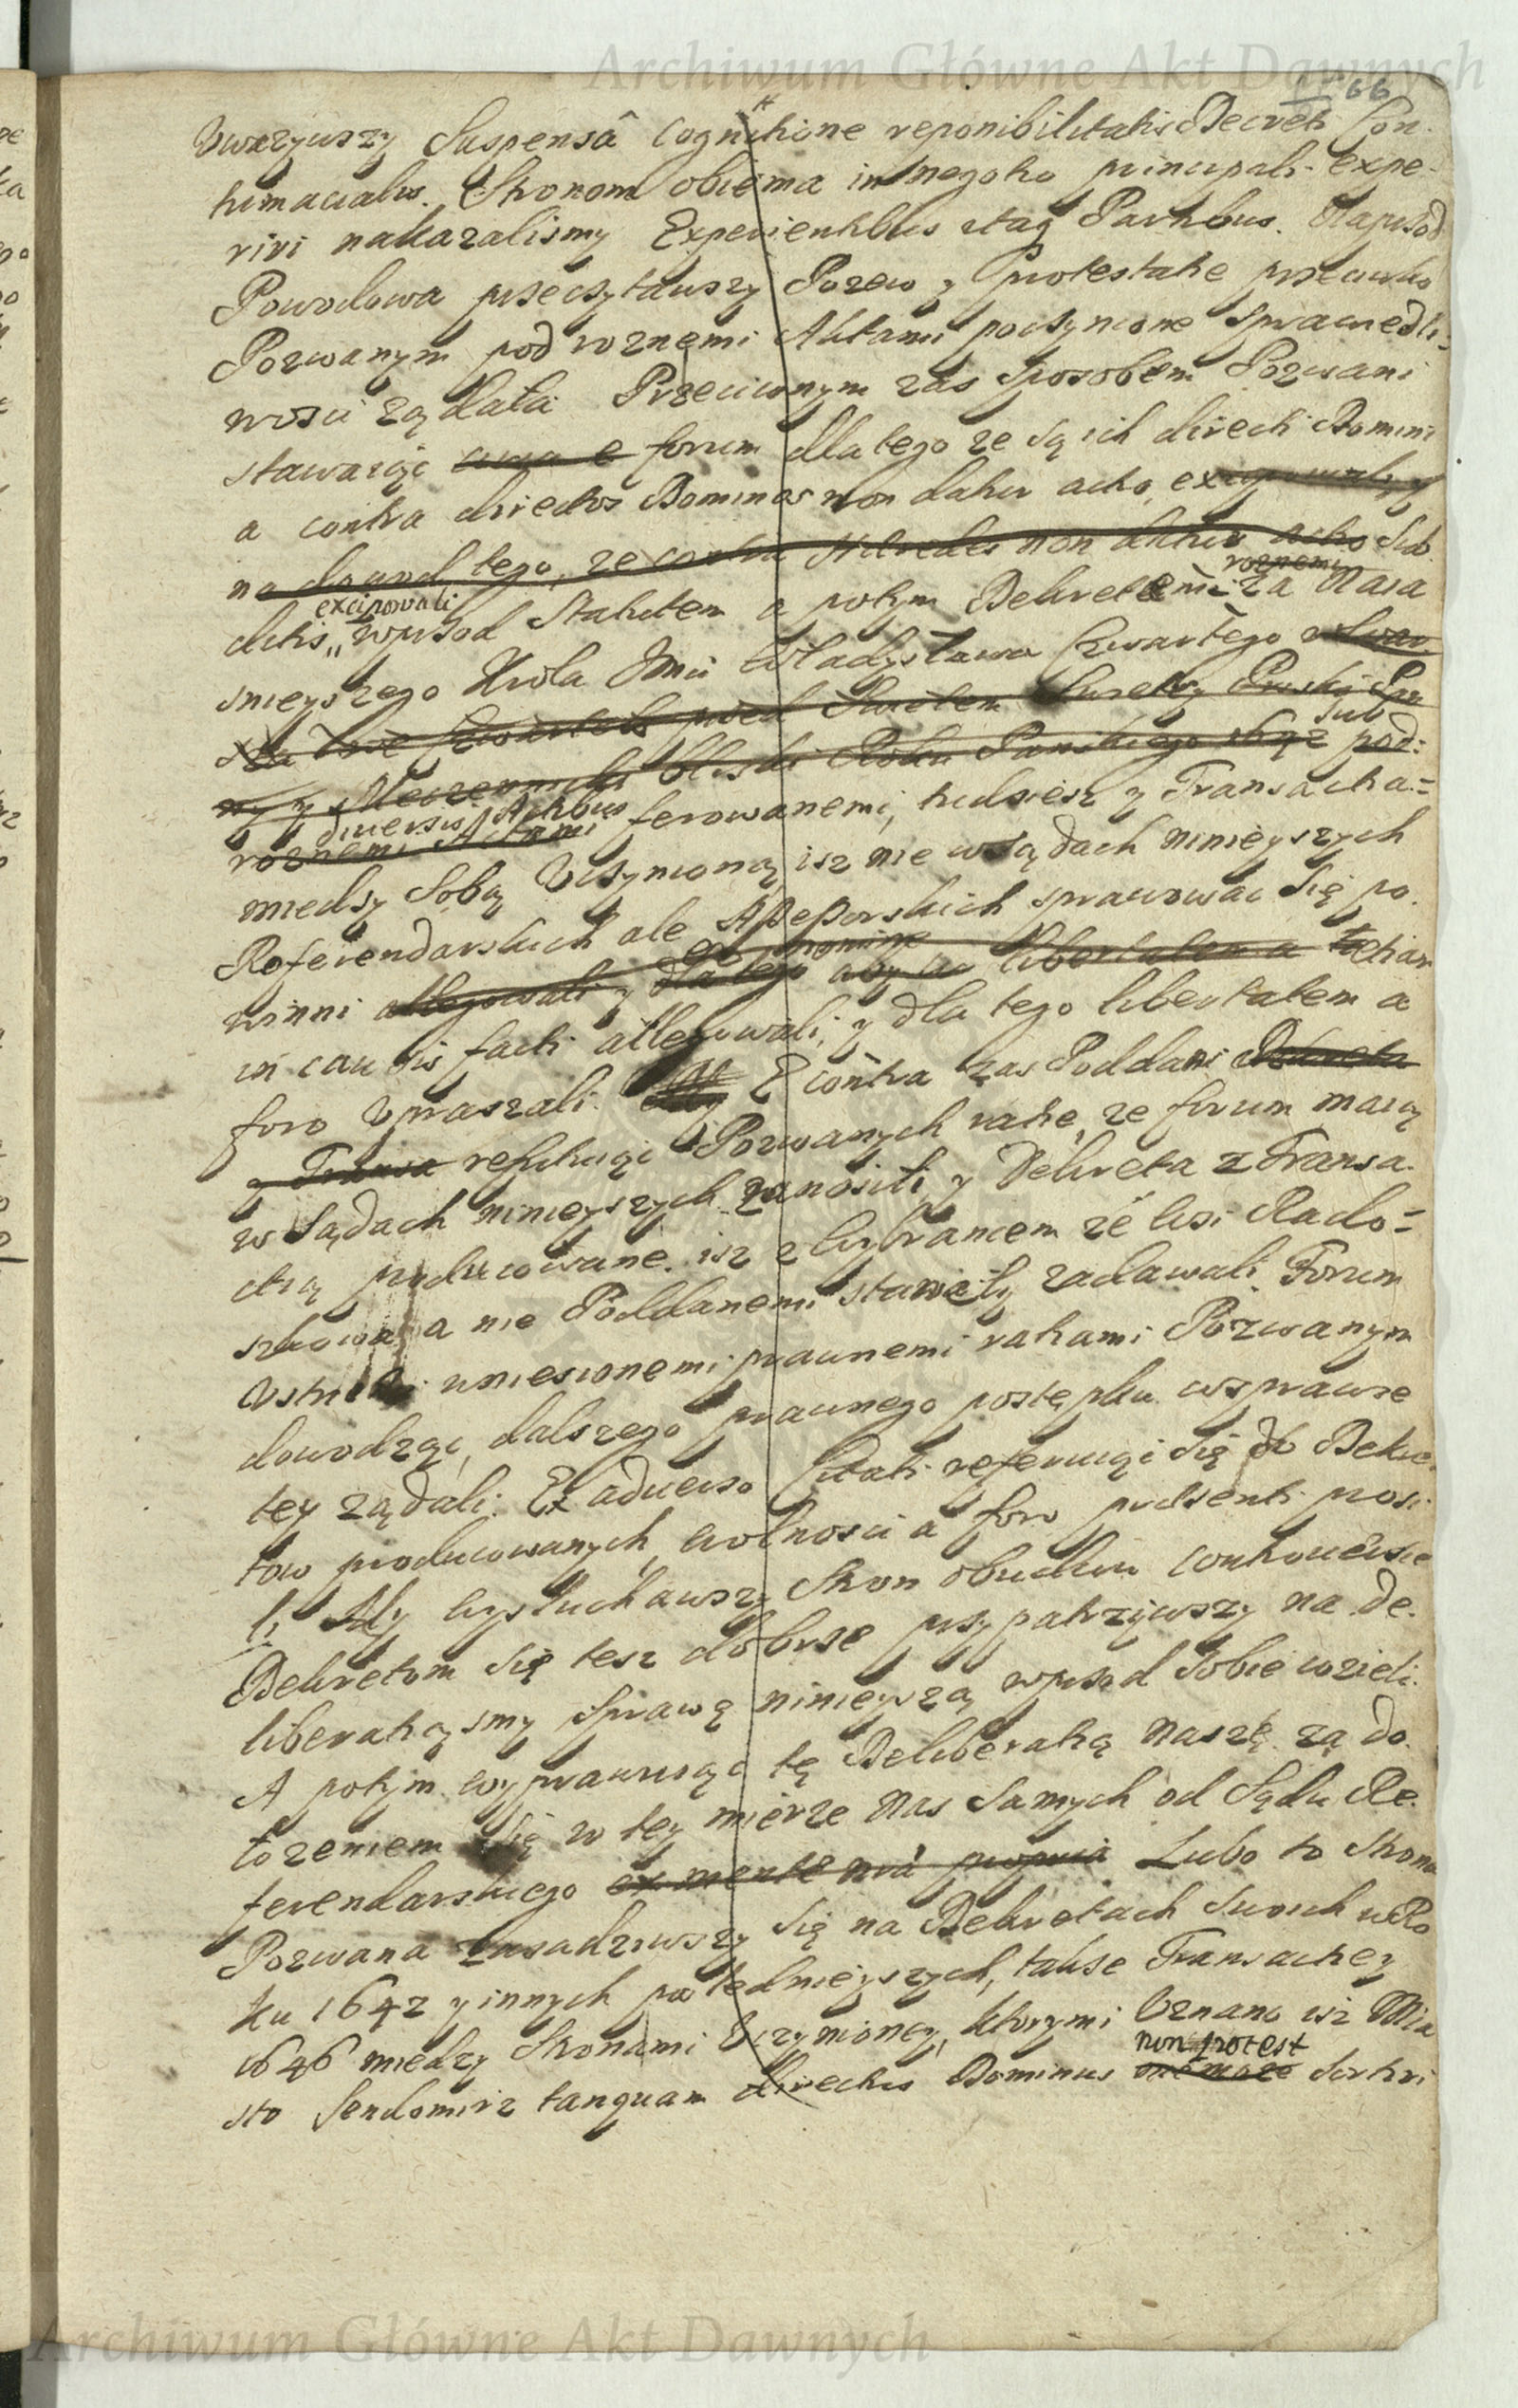 Archiwum Główne Akt Dawnych
66
Uwazywszy Suspensâ cognitione reponibilitatis Decreti Con-
tumacialis. Stronom obiema in negotio principali expe-
riri nakazalismy Experientibus itaq Partibus. Naprsod
Powodowa przeczytawszy Pozew y Protestatie przeciwko
Pozwanym pod roznemi Aktami poczynione sprawiedli-
wosci ządała Przeciwnym zas sposobem Pozwani
stawaiąc forum dlatego ze są ich directi Domini
a contra directos Dominos non datur actio,
na dowod tego, ze contra Heredes non datur actio Sub
excipowali roznemi
ditis, wprzod Statutem a potym Dekretami za Naia
snieyszego Krola Jmci Władysława Czwartego
sub
Roku Panskiego 1642 pod:
diversis Actibus
roznemi Aktami ferowanemi, tudziesz y Transactia=
miedzy sobą Uczynioną, isz nie w sądach ninieyszych
Referendarskich ale Assessorskich sprawowac się po
winni allegowali y dla tego aby libertatem a etiam
in causis facti allegowali, y dla tego libertatem a
foro Upraszali. E contra zas Poddani
refutuiąc Pozwanych ratie, ze forum maią
w Sądach ninieyszych zanosili, y Dekreta z Transa-
ctią producowane, isz z Wybrancem ze wsi Rado=
a nie Poddanemi stanęły zadawali. Forum
wniesionemi prawnemi ratiami Pozwanym
dowodząc, dalszego prawnego postępku w sprawie
tey ządali. Ex adverso Citati referuiąc się do Dekre
tow producowanych, wolnosci a foro praesenti prosi
li, My wysłuchawszy Stron obudwu controversie
Dekretom się tesz dobrze przypatrzywszy na de-
liberatią smy Sprawę ninieyszą wprzod sobie wzieli.
A potym wyprawuiąc tę Deliberatią naszę za do
łozeniem się w tey mierze Nas samych od Sądu Re
ferendarskiego ex mente nrâ propria Lubo to Strona
Pozwana zasadziwszy się na Dekretach swoich w Ro
ku 1642 y innych poslednieyszych, takze Transactiey
1646 miedzy Stronami Uczynioney, ktorymi Uznano isz Mia
non potest
sto Sendomirz tanquam directus Dominus nie moze sortiri
Archiwum Główne Akt Dawnych